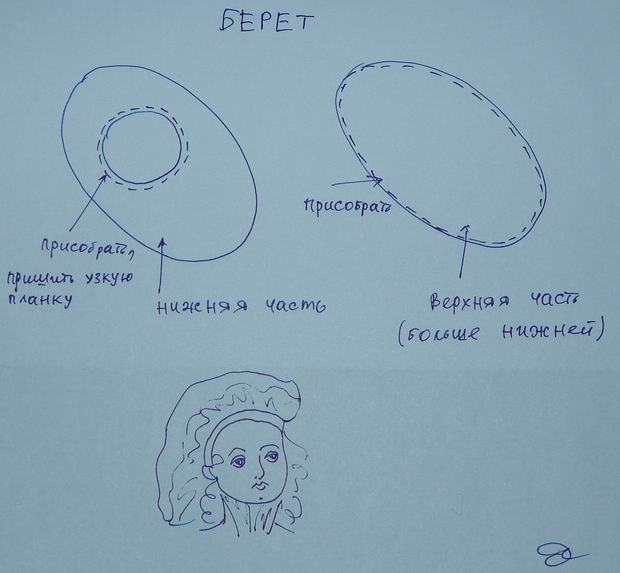 БЕРЕТ
присобрать,
пришить узкую
планку
нижняя часть
присобрать
верхняя часть
(больше нижней)